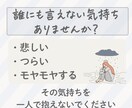 誰にも言えない気持ち
ありませんか?
・悲しい
・つらい
・モヤモヤする
その気持ちを
一人で抱えないでください